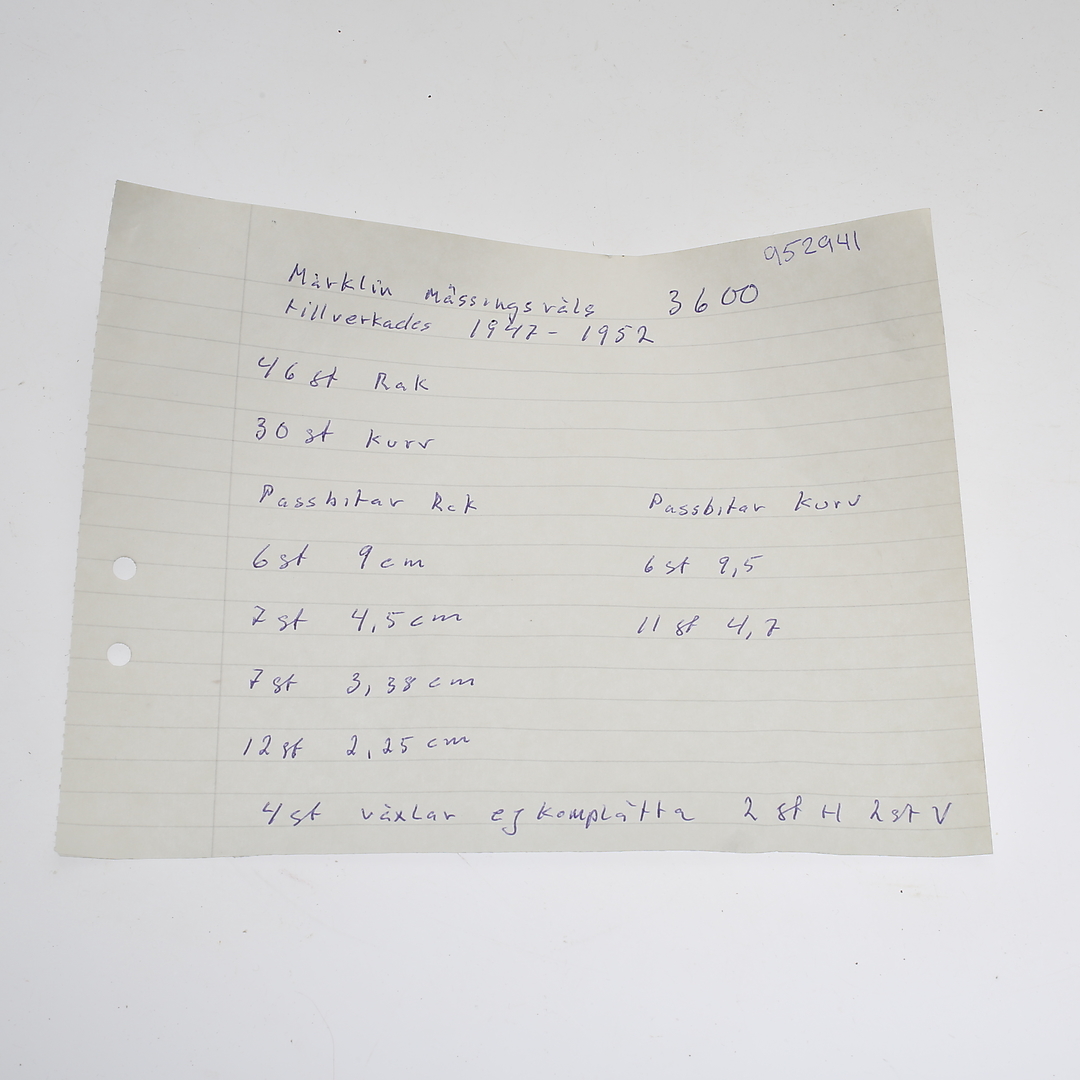 952941
Märklin mässingsräls 3600
tillverkades 1947-1952
46 st Rak
30 st kurv
Passbitar Rak Passbitar Kurv
6 st 9 cm 6 st 9,5
7 st 4,5 cm 11 st 4,7
7 st 3,38 cm
12 st 2,25 cm
4 st växlar ej komplätta 2 st H 2 st V